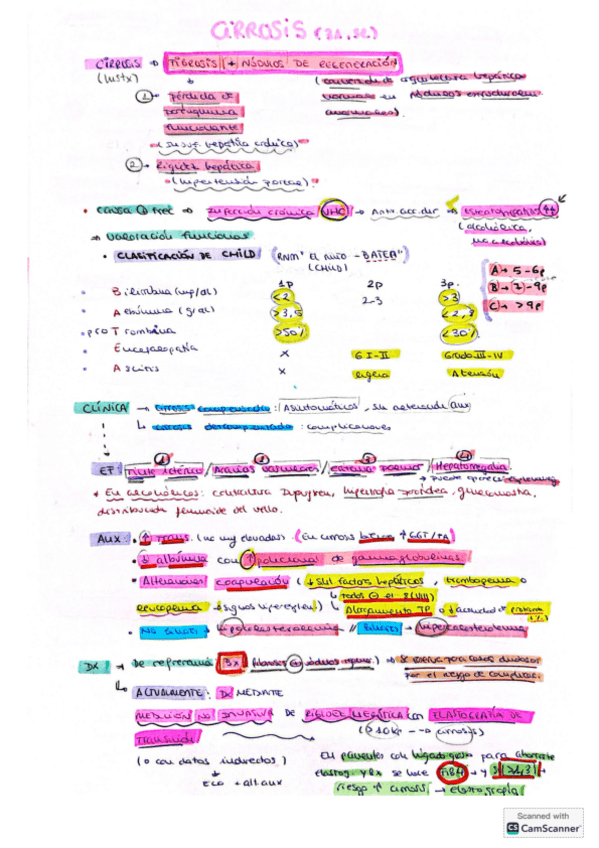 CIRROSIS
CIRROSIS ⇒ FIBROSIS + NÓDULOS DE REGENERACIÓN
(conversión de arquitectura hepática
normal en nódulos estructuralm.
anormales).
① → Pérdida de
parénquima
funcionante
(Insuf. hepática crónica)
② → Rigidez hepática
(Hipertensión portal)
• Causa + frec ⇒ Infección crónica VHC → ⇒ Esteatohepatitis ↑↑
(alcohólica,
no alcohólica)
⇒ Valoración funcional
• CLASIFICACIÓN DE CHILD (RNM "EL NIÑO - BATEA")
(CHILD)
1p 2p 3p.
• Bilirrubina (mg/dL) <2 2-3 >3
• Albúmina (g/dL) >3,5
• proTrombina >50% <30%
• Encefalopatía x G I-II Grado III-IV
• Ascitis x ligera A tensión
A → 5-6p
B → 7-9p
C → >9p
CLÍNICA → cirrosis compensada: Asintomáticos, sin
↳ cirrosis descompensada: complicaciones
EF: Tinte ictérico / Arañas vasculares / eritema palmar / Hepatomegalia
→ puede aparecer
* En alcohólicos: contractura Dupuytren, hipertrofia parótidea, ginecomastia,
distribución feminoide del vello.
AUX • ↑ Trans. (no muy elevadas). (En cirrosis biliares ↑ GGT/FA)
• ↓ albúmina con ↑ policlonal de gammaglobulinas
• Alteraciones coagulación (↓ Sínt factores hepáticos, trombopenia o
leucopenia → signos hiperesplen.) ↳ todos ⊖ el 8 (VIII)
↳ Alargamiento TP o ↓ actividad de
• No biliares → hipocolesterolemia // Biliares → hipercolesterolemia
DX → De referencia: Bx (fibrosis + nódulos regen.) → Se reserva para casos dudosos
por el riesgo de complicac.
↳ ACTUALMENTE: DX MEDIANTE
MEDICIÓN NO INVASIVA DE RIGIDEZ HEPÁTICA con ELASTOGRAFÍA DE
TRANSICIÓN
(o con datos indirectos)
↳ Eco + alt. aux
En pacientes con hígado graso para ahorrarte
elastog. y Bx se hace FIB4 → y si
riesgo ↑ cirrosis → elastografía
Scanned with
CS CamScanner